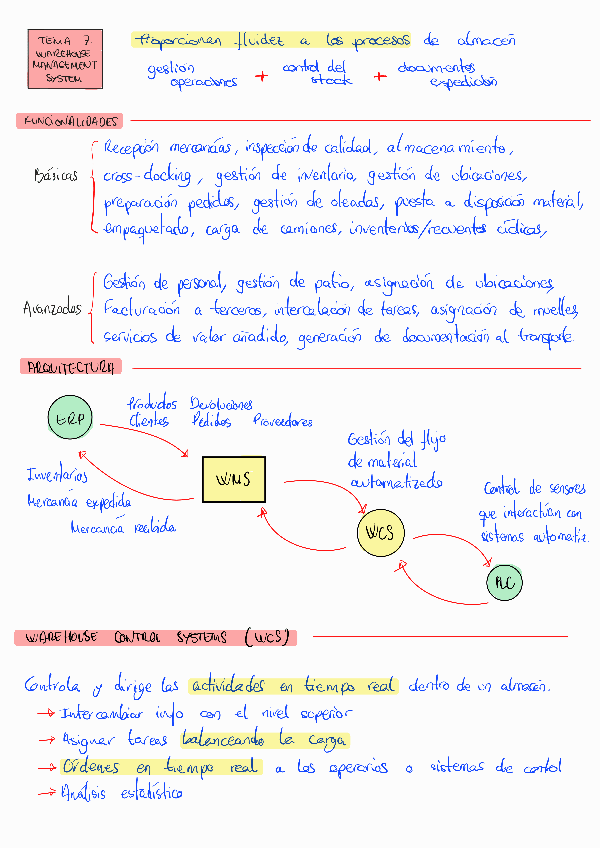 TEMA 7.
WAREHOUSE
MANAGEMENT
SYSTEM
Proporcionan fluidez a los procesos de almacén
gestión
operaciones
+
control del
stock
+
documentos
expedición
FUNCIONALIDADES
Básicas
Recepción mercancías, inspección de calidad, almacenamiento,
cross-docking, gestión de inventario, gestión de ubicaciones,
preparación pedidos, gestión de oleadas, puesta a disposición material,
empaquetado, carga de camiones, inventarios/recuentos cíclicos,
Avanzadas
Gestión de personal, gestión de patio, asignación de ubicaciones,
Facturación a terceros, intercalación de tareas, asignación de muelles,
servicios de valor añadido, generación de documentación al transporte.
ARQUITECTURA
ERP
Productos Devoluciones
Clientes Pedidos Proveedores
Inventarios
Mercancía expedida
Mercancía recibida
WMS
Gestión del flujo
de material
automatizado
WCS
Control de sensores
que interactúan con
sistemas automatiz.
PLC
WAREHOUSE CONTROL SYSTEMS (WCS)
Controla y dirige las actividades en tiempo real dentro de un almacén.
→ Intercambiar info con el nivel superior
→ Asignar tareas balanceando la carga
→ Órdenes en tiempo real a los operarios o sistemas de control
→ Análisis estadístico